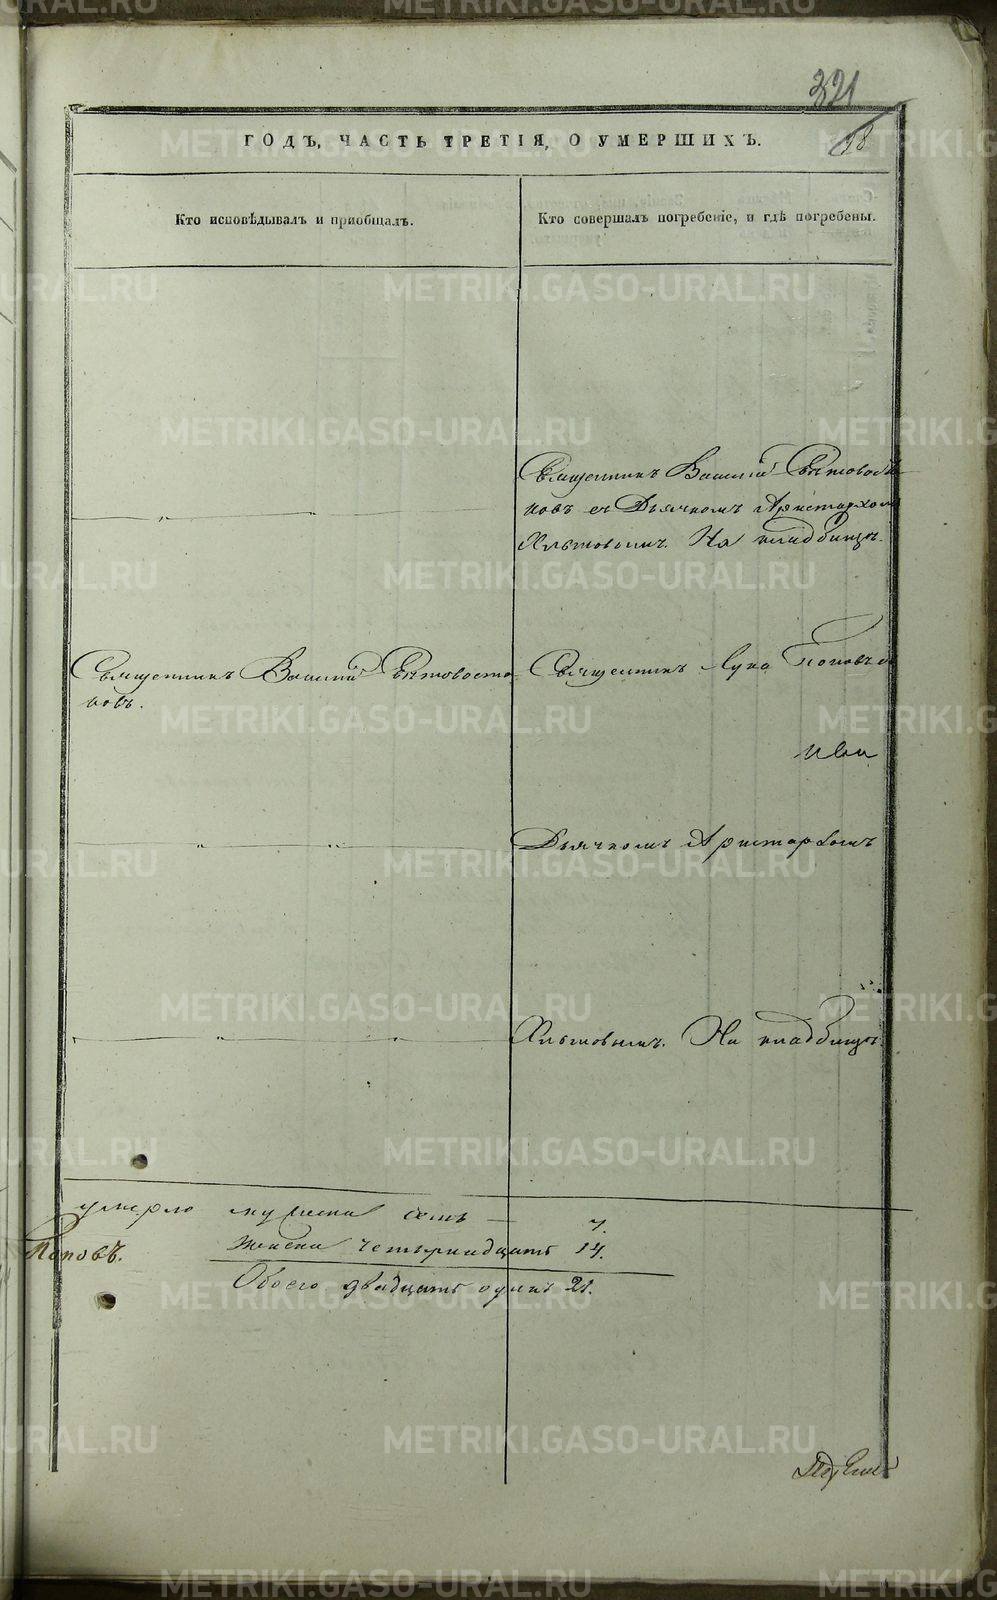 321
18
ГОДЪ, ЧАСТЬ ТРЕТІЯ, О УМЕРШИХЪ.
Кто исповѣдывалъ и пріобщалъ.
Кто совершалъ погребеніе, и гдѣ погребены.
Священникъ Василій Свѣтовосто
ковъ съ Дьячкомъ Аристархомъ
Хлѣтовымъ. На кладбищѣ.
Священникъ Василій Свѣтовосто
ковъ.
Священникъ Лука Поповъ съ
Дьячкомъ Аристархомъ
На кладбищѣ.
умерло мужеска семь — 7.
Поповъ.
Женска четырнадцать 14.
Обоего двадцать одинъ 21.
METRIKI.GASO-URAL.RU